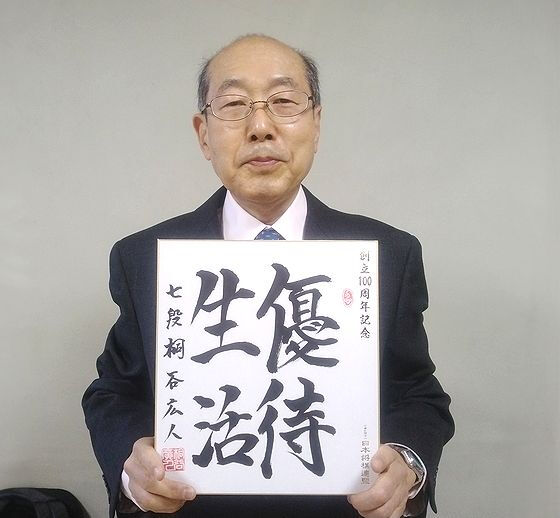 創立100周年記念
優待
生活
七段 桐谷広人
日本将棋連盟